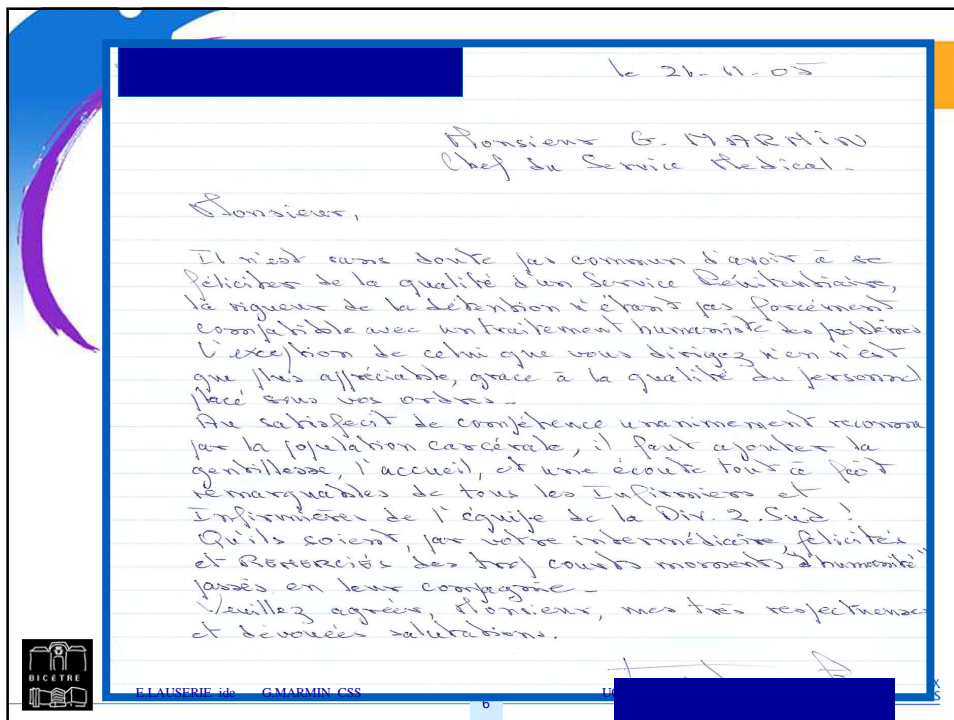 le 21-11-05
Monsieur G. MARMIN
Chef du Service Medical -
Monsieur,
Il n'est sans doute pas commun d'avoir à se
féliciter de la qualité d'un Service Pénitentiaire,
la rigueur de la détention n'étant pas forcément
compatible avec un traitement humaniste des problèmes
L'exception de celui que vous dirigez n'en n'est
que plus appréciable, grâce à la qualité du personnel
placé sous vos ordres -
Au satisfecit de compétence unanimement reconnu
par la population carcérale, il faut ajouter la
gentillesse, l'accueil, et une écoute tout à fait
remarquables de tous les Infirmiers et
Infirmières de l'équipe de la Div. 2. Sud !
Qu'ils soient, par votre intermédiaire, félicités
et REMERCIÉS des trop courts moments "d'humanité"
passés en leur compagnie -
Veuillez agréer, Monsieur, mes très respectueuses
et dévouées salutations.
BICÊTRE
E.LAUSERIE ide G.MARMIN CSS
6